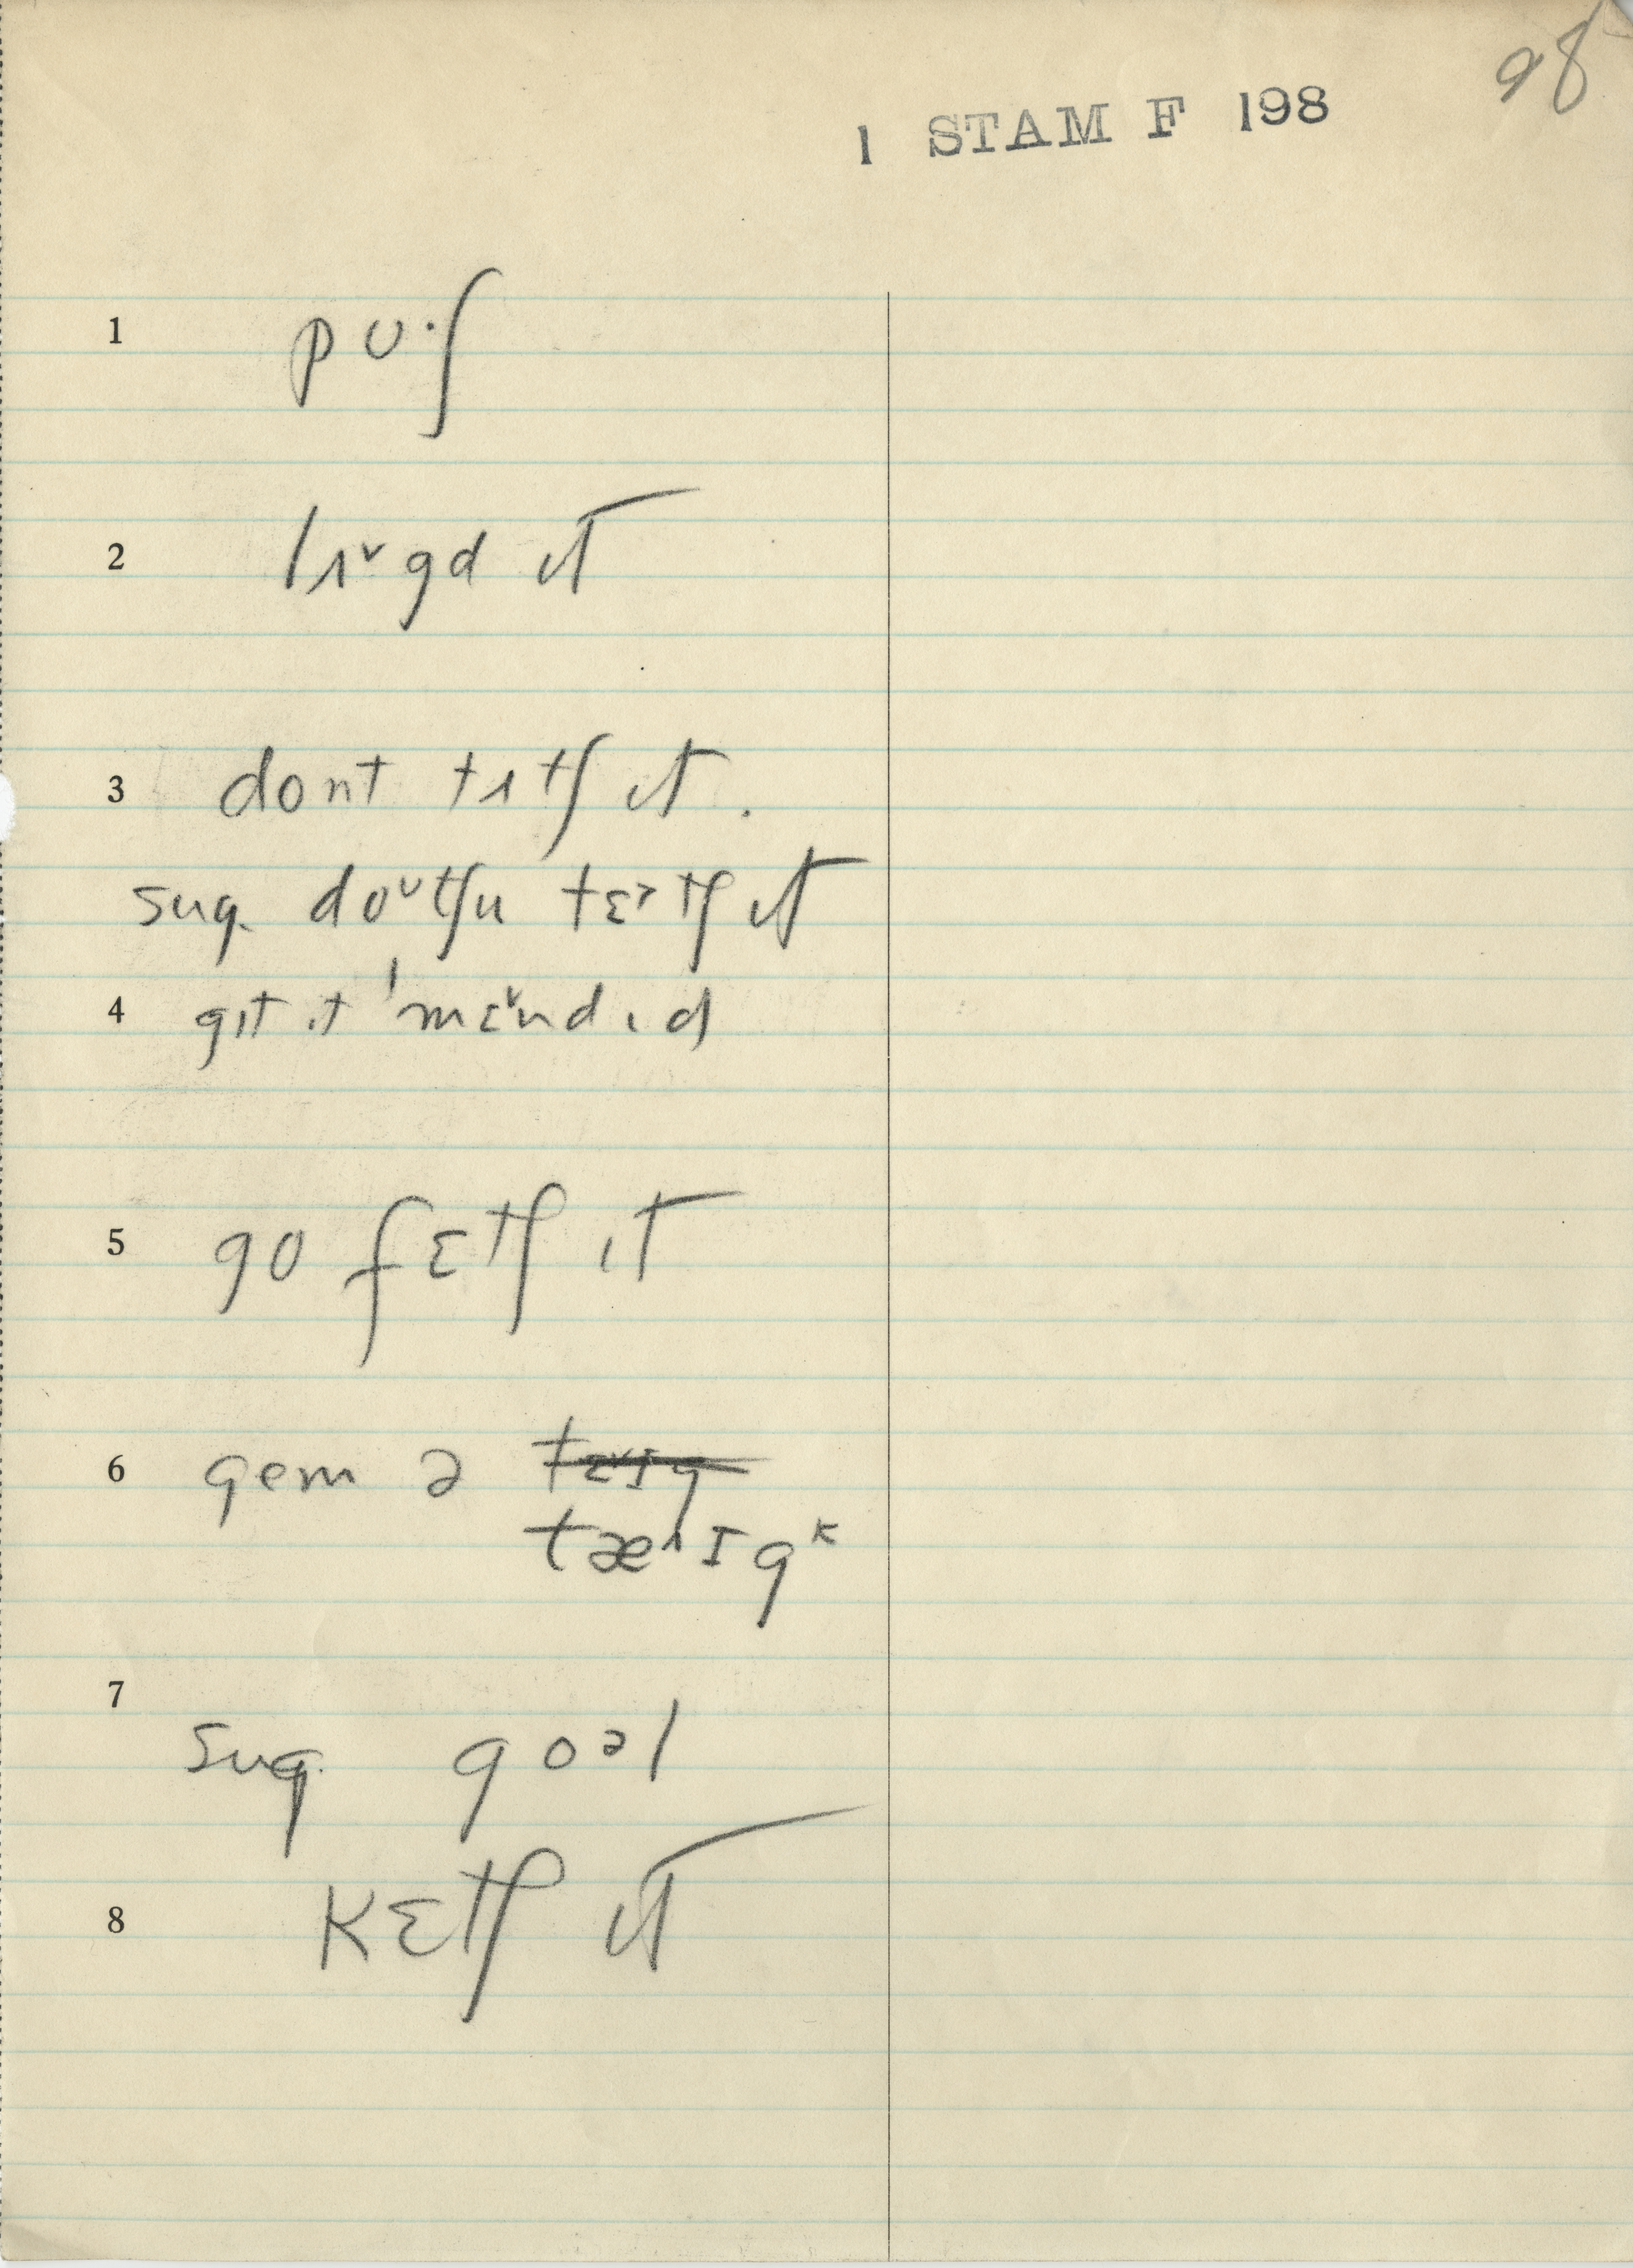 98
1 STAM F 198
1 pʊ·ʃ
2 lɪᵛgd ɪt
3 dont tɪtʃ ɪt.
sug. doᶷtʃu tɛᵊtʃ ɪt
4 gɪt ɪt ˈmɛᵛndɪd
5 go fɛtʃ ɪt
6 gem ə
tæᴧɪgᴷ
7
sug. goᵊl
8 kɛtʃ ɪt